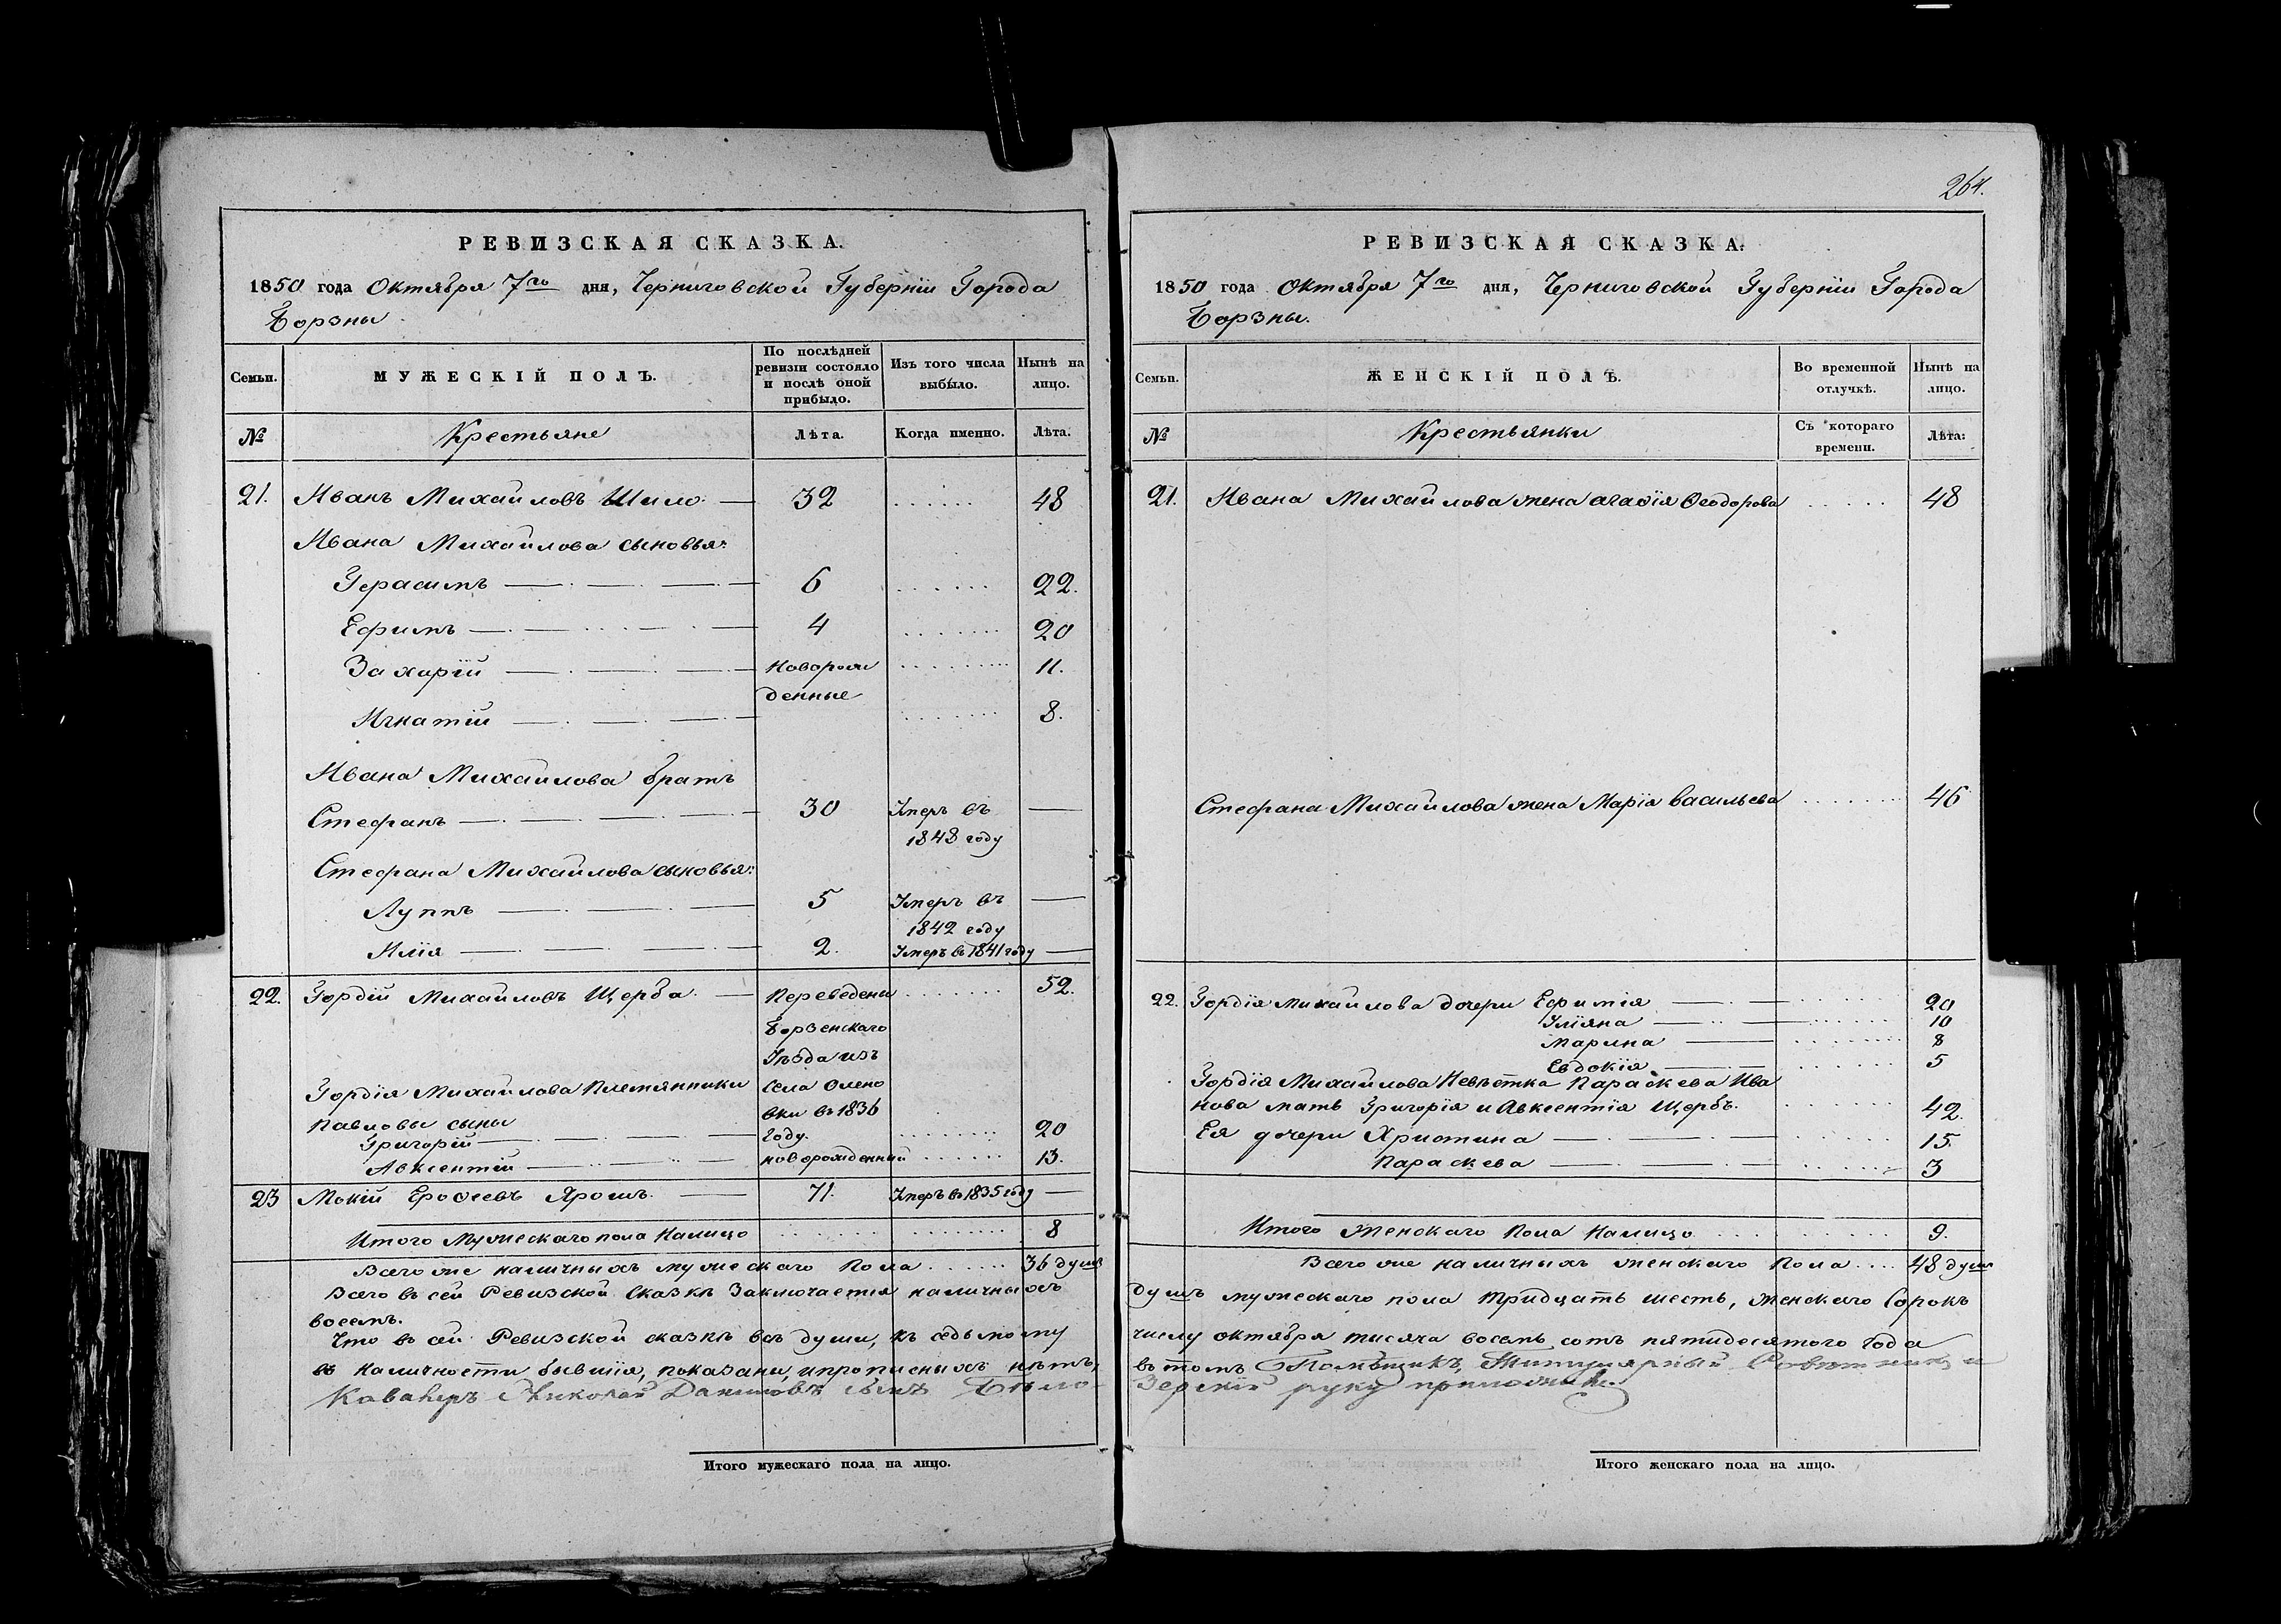 РЕВИЗСКАЯ СКАЗКА.
1850 года Октября 7го дня, Черниговской Губерніи Города
Борзны
Семьи.
МУЖЕСКІЙ ПОЛЪ.
По послѣдней
ревизіи состояло
и послѣ оной
прибыло.
Изъ того числа
выбыло.
Нынѣ на
лицо.
№
Крестьяне
Лѣта.
Когда именно.
Лѣта.
21. Иванъ Михайловъ Шило. 32 48
Ивана Михайлова сыновья:
Герасимъ 6 22.
Ефимъ 4 20
Захарій новорож 11.
денные
Игнатій 8.
Ивана Михайлова братъ
Стефанъ 30 Умеръ въ
1848 году
Стефана Михайлова сыновья:
Луппъ 5 Умеръ въ
1842 году
Илія 2. Умеръ въ 1841 году
22. Гордій Михайловъ Щерба. Переведены 52.
Борзенскаго
Уѣзда изъ
Гордія Михайлова Племянники села Олено
Павловы сыны вки въ 1836
Григорій году. 20
Авксентій новорожденный 13.
23 Мокій Ерофеевъ Ярошъ. 71. Умеръ въ 1835 году
Итого Мужескаго пола Налицо 8
Всего же наличныхъ мужескаго пола 36 душъ
Всего въ сей Ревизской Сказкѣ Заключается наличныхъ
восемь.
Что въ сей Ревизской сказкѣ всѣ души, къ седьмому
въ наличности бывшія, показаны, и прописныхъ нѣтъ,
Кавалеръ Николай Даниловъ сынъ Бѣло-
Итого мужескаго пола на лицо.
264.
РЕВИЗСКАЯ СКАЗКА.
1850 года Октября 7го дня, Черниговской Губерніи Города
Борзны.
Семьи.
ЖЕНСКІЙ ПОЛЪ.
Во временной
отлучкѣ.
Нынѣ на
лицо.
№
Крестьянки
Съ котораго
времени.
Лѣта:
21. Ивана Михайлова жена Агафія Феодорова 48
Стефана Михайлова жена Марія Васильева 46
22. Гордія Михайлова дочери Ефимія 20
Уліяна 10
Марина 8
Евдокія 5
Гордія Михайлова Невѣстка Параскева Ива
нова мать Григорія и Авксентія Щербъ. 42.
Ея дочери Христина 15.
Параскева 3
Итого Женскаго Пола Налицо 9.
Всего же наличныхъ женскаго пола 48 душъ
душъ мужескаго пола тридцать шесть, женскаго Сорокъ
числу октября тысяча восемь сотъ пятидесятого года
въ томъ Помѣщикъ, Титулярный Совѣтникъ и
Зерскій руку приложилъ.
Итого женскаго пола на лицо.